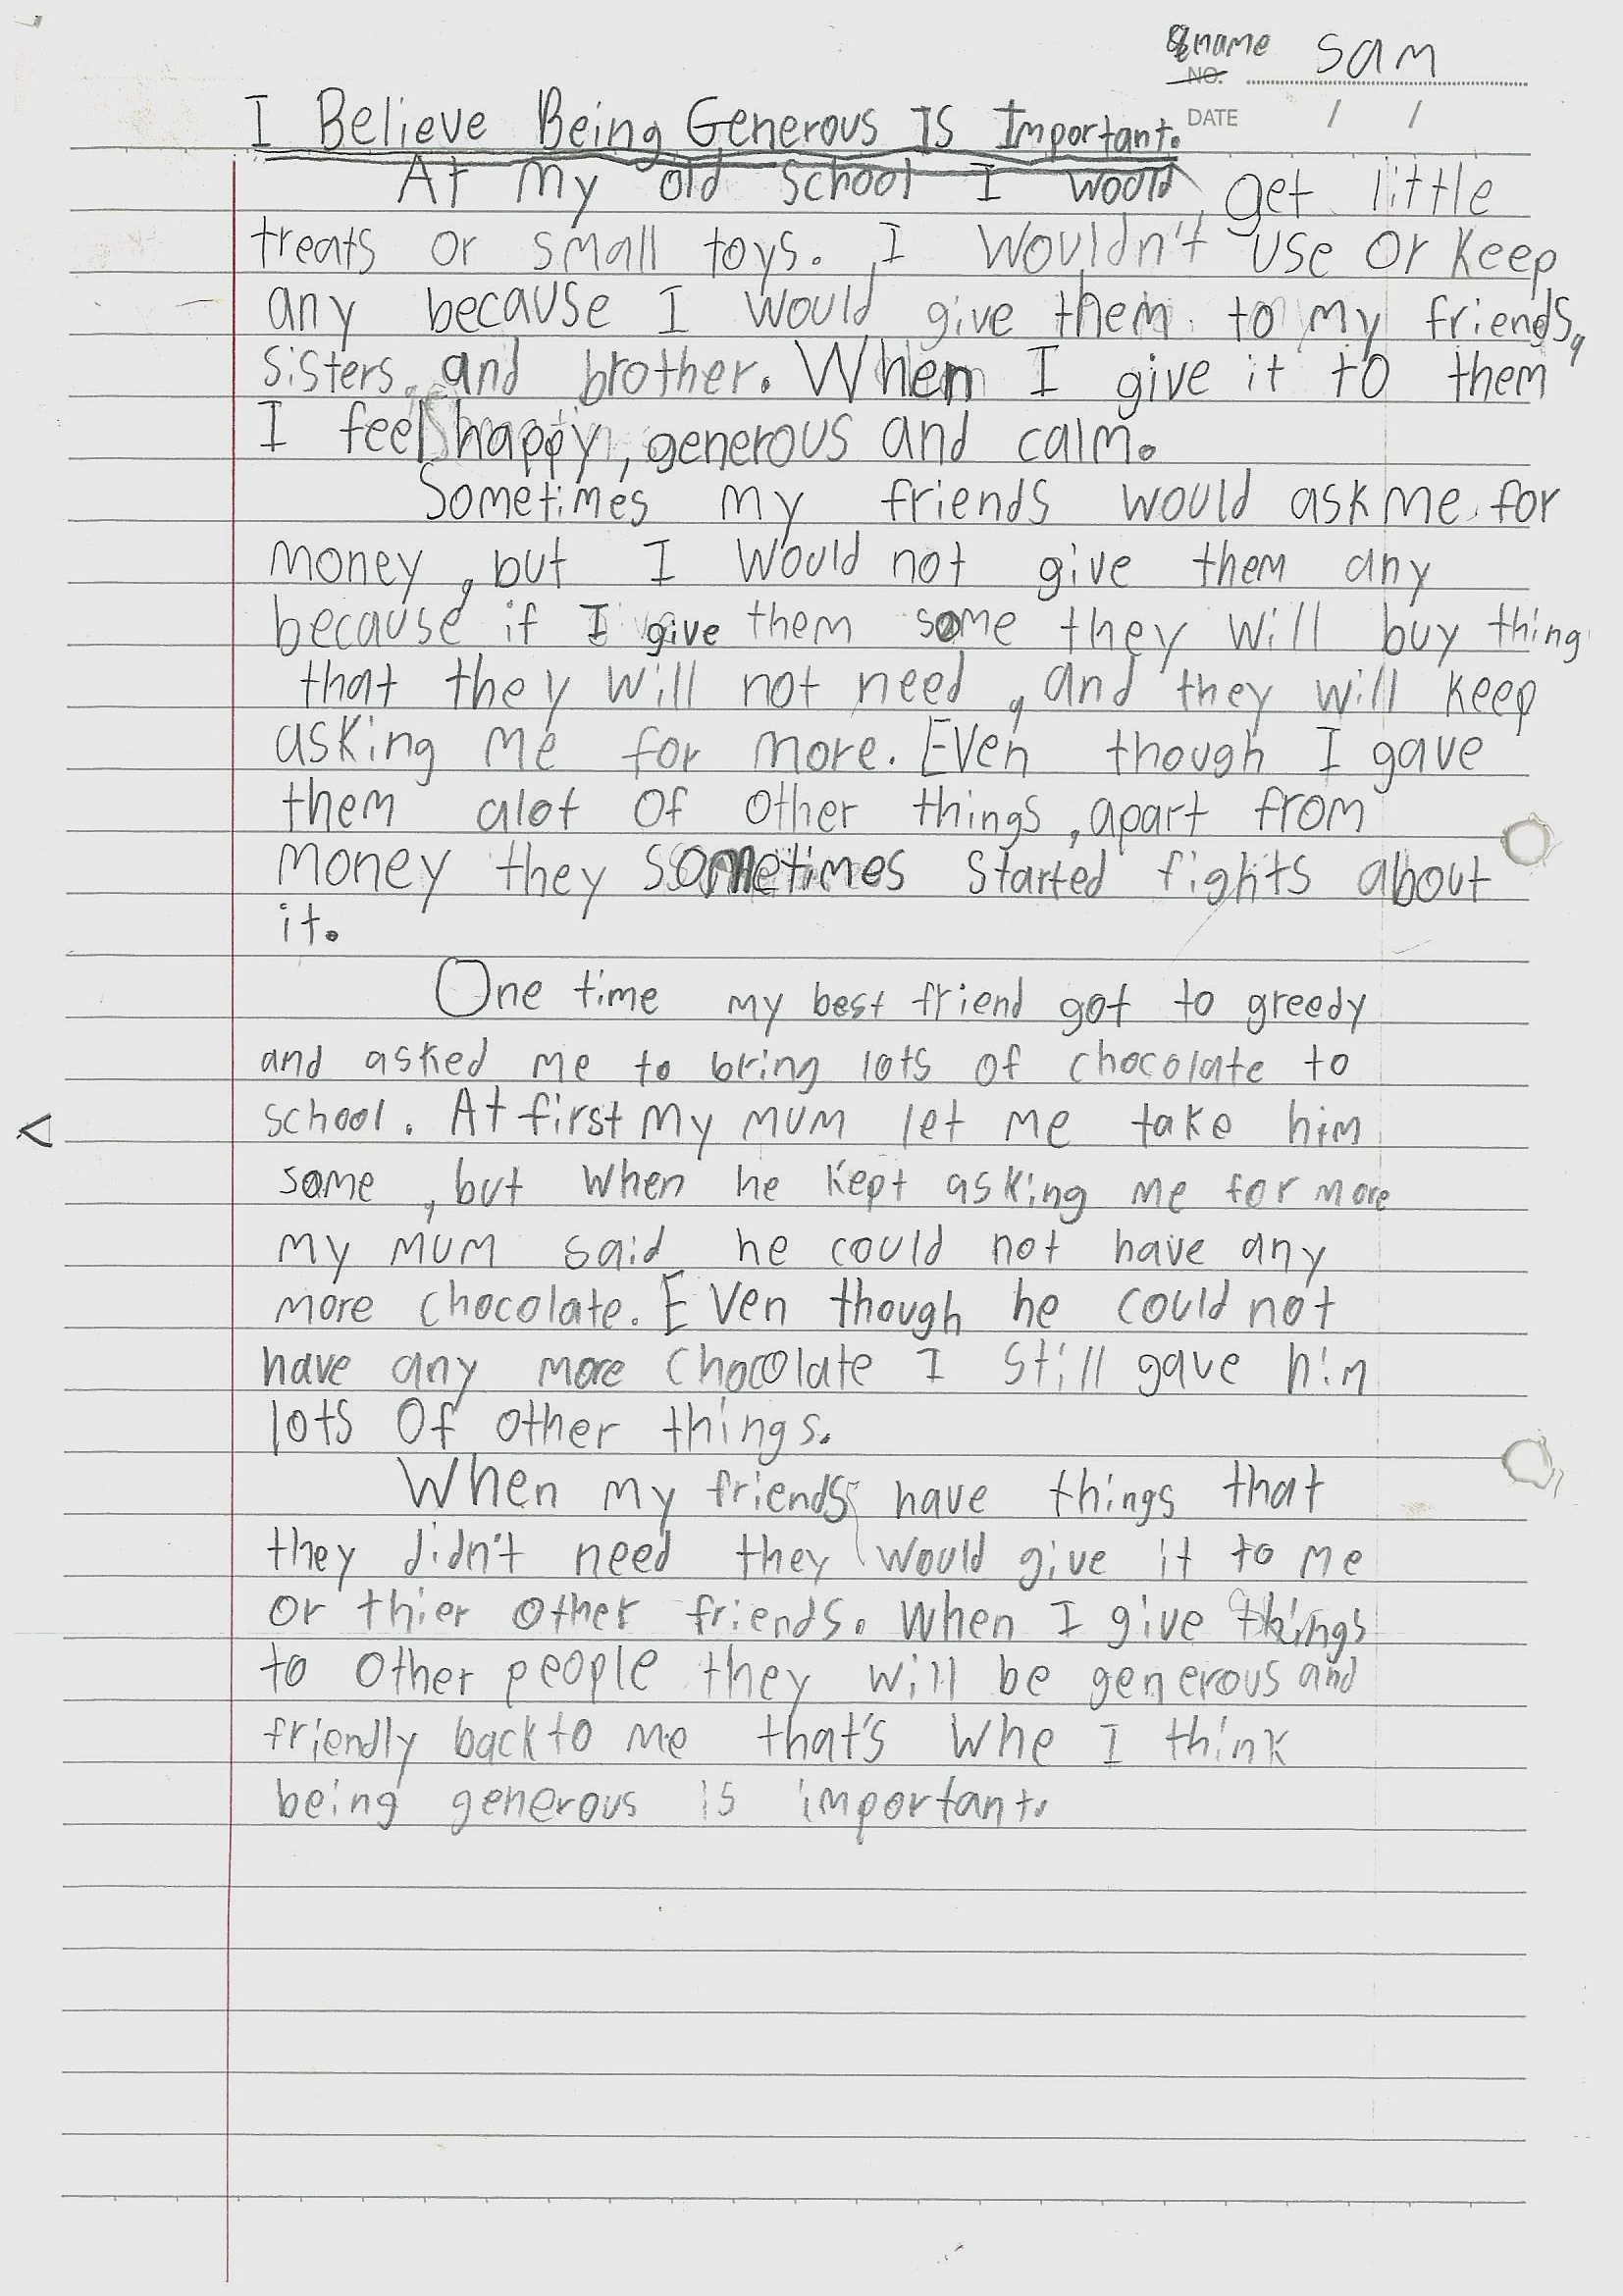 name Sam
NO.
DATE / /
I Believe Being Generous Is Important.
At my old school I would get little
treats or small toys. I wouldn't use or keep
any because I would give them to my friends,
sisters, and brother. When I give it to them
I feel happy, generous and calm.
Sometimes my friends would ask me for
money, but I would not give them any
because if I give them some they will buy thing
that they will not need, and they will keep
asking me for more. Even though I gave
them alot of other things, apart from
money they sometimes started fights about
it.
One time my best friend got to greedy
and asked me to bring lots of chocolate to
school. At first my mum let me take him
some, but when he kept asking me for more
my mum said he could not have any
more chocolate. Even though he could not
have any more chocolate I still gave him
lots of other things.
When my friends have things that
they didn't need they would give it to me
or thier other friends. When I give things
to other people they will be generous and
friendly back to me that's whe I think
being generous is important.